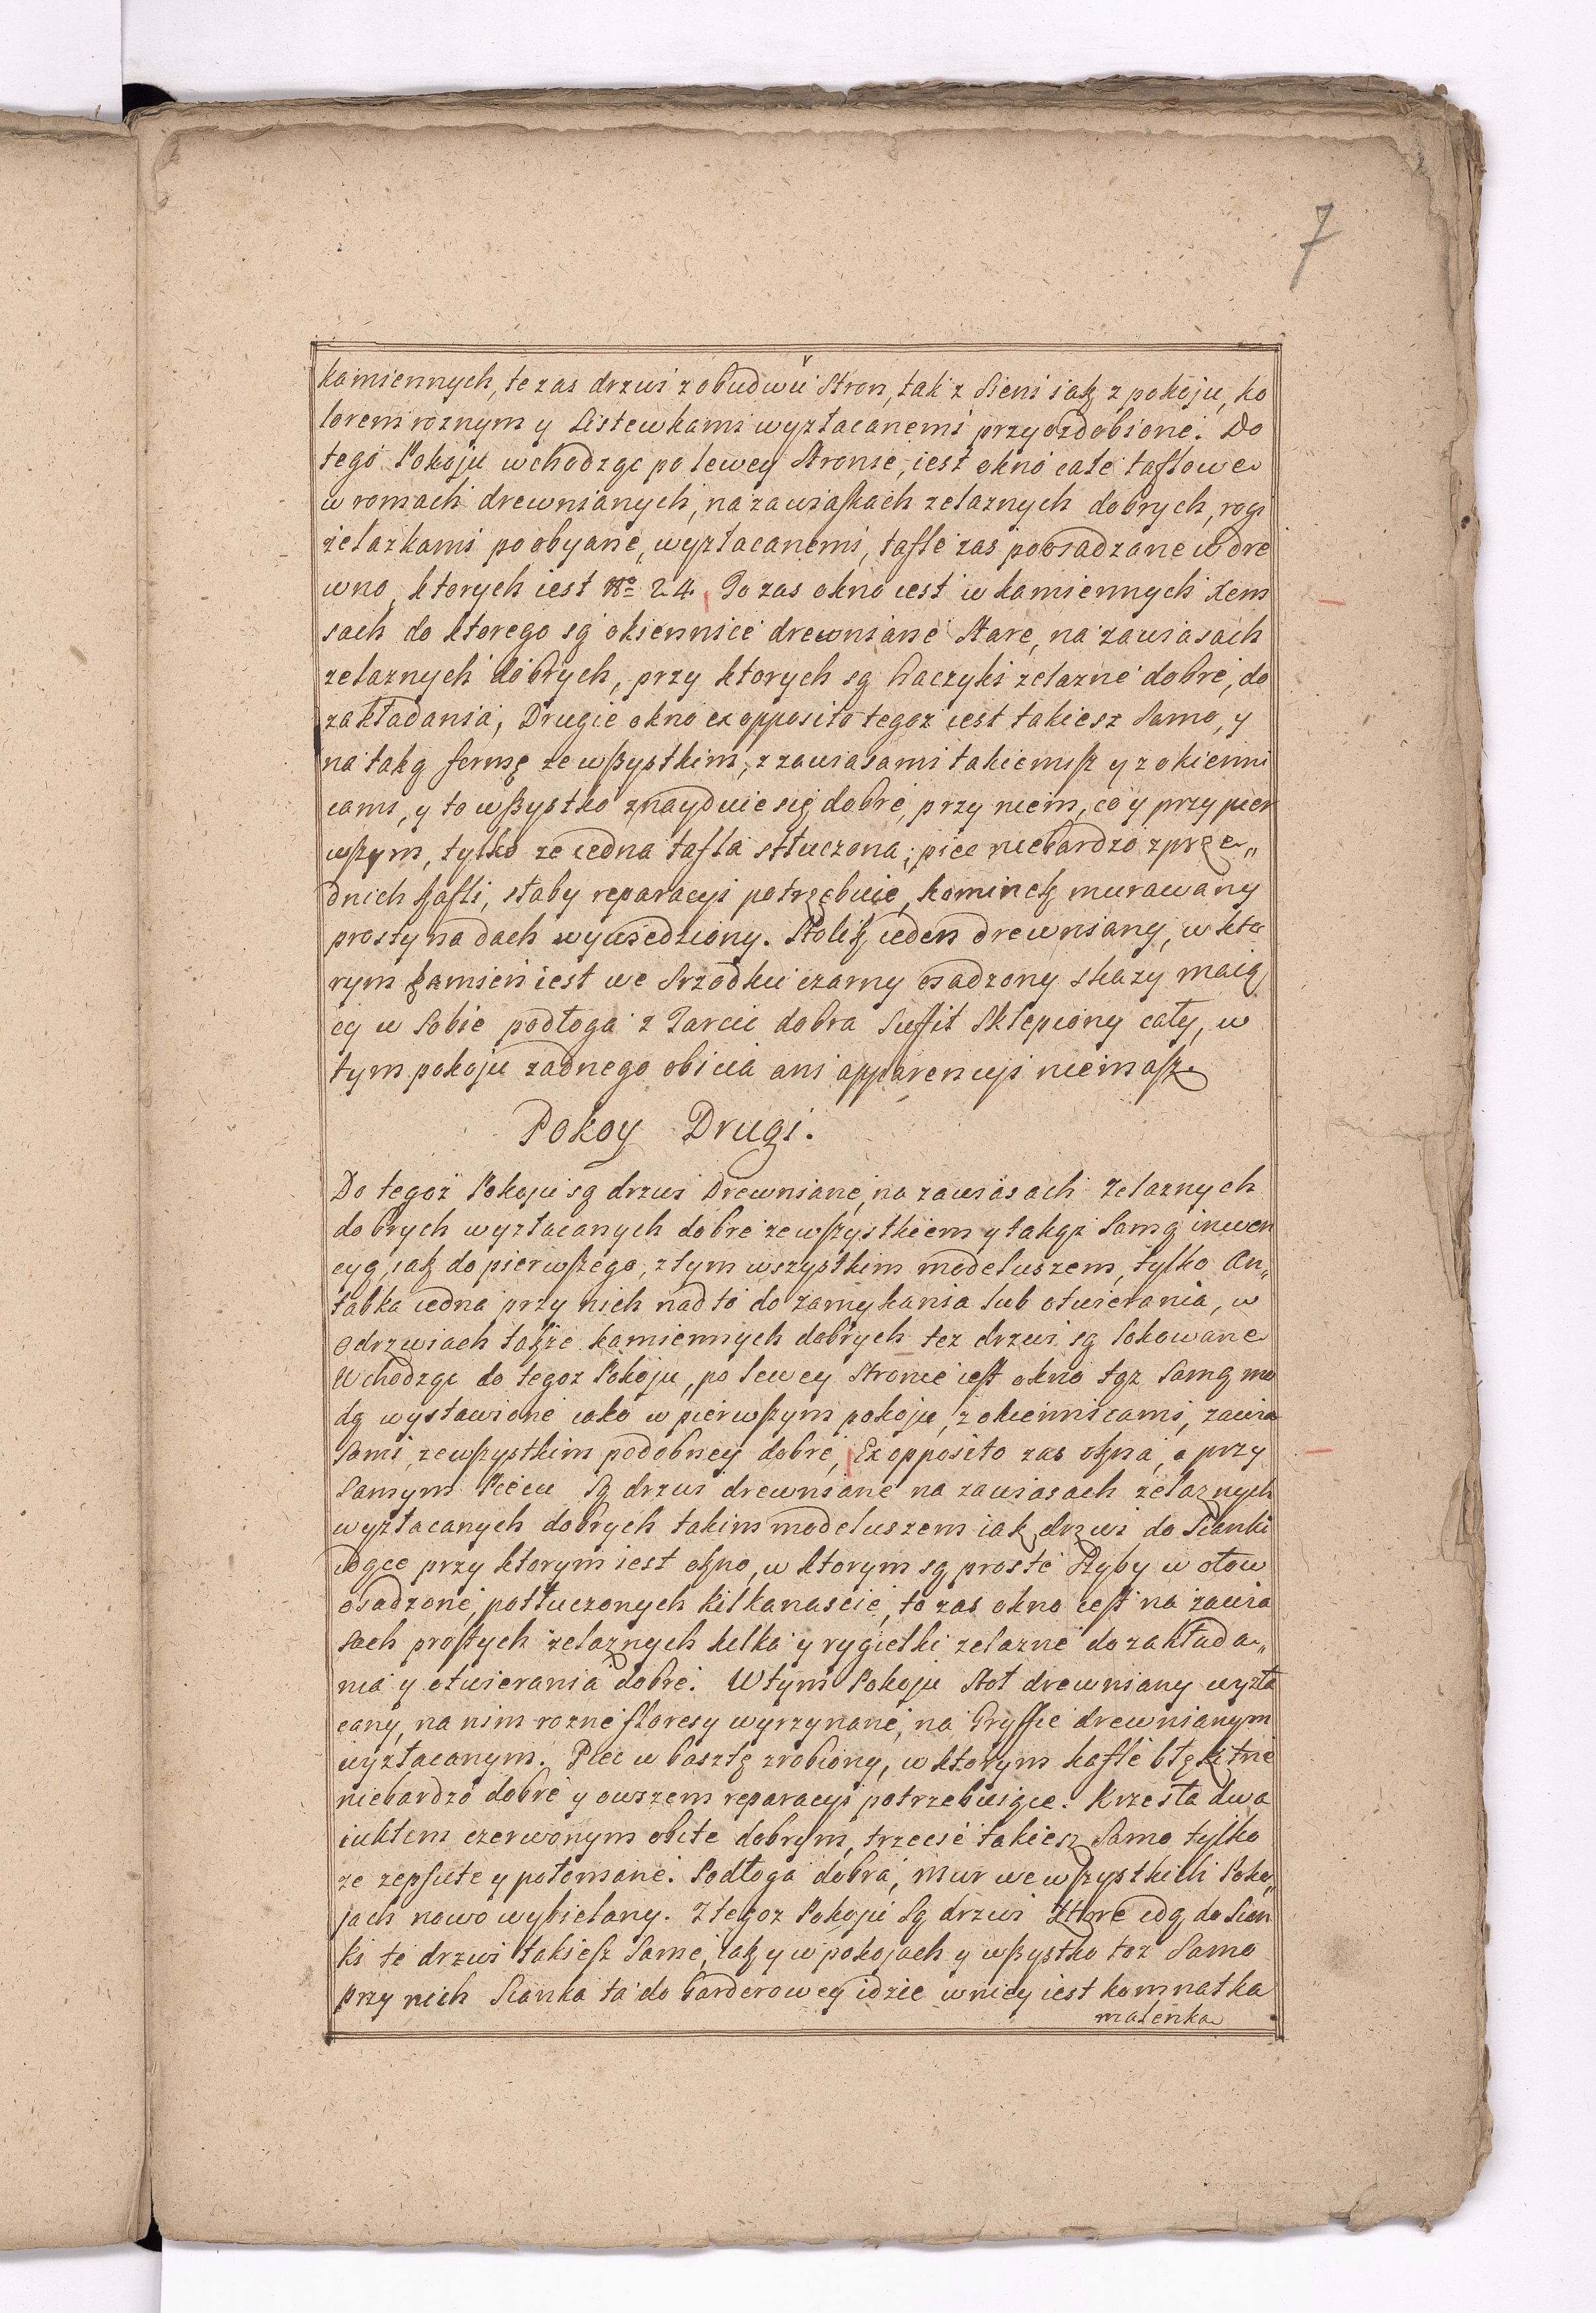 7
kamiennych, te zas drzwi z obudwu Stron, tak z Sieni iak z pokoju, ko
lorem roznym y Listewkami wyzłacanemi przyozdobione. Do
tego Pokoju wchodząc po lewey Stronie, iest okno całe taflowe
w romach drewnianych, na zawiaskach zelaznych dobrych, rogi
zelazkami poobyane, wyzłacanemi, tafle zas poosadzane w dre
wno, ktorych iest No 24. To zas okno iest w kamiennych Xem
sach do ktorego są okiennice drewniane Stare, na zawiasach
zelaznych dobrych, przy ktorych są haczyki zelazne dobre, do
zakładania, Drugie okno ex opposito tegoz iest takiesz Samo, y
na taką formę ze wszystkim, z zawiasami takiemisz y z okienni
cami, y to wszystko znayduie się dobre, przy niem, co y przy pier
wszym, tylko ze iedna tafla stłuczona; piec niebardzo z prze„
dnich kafli, słaby reparacyi potrzebuie, kominek murawany
prosty na dach wywiedziony. Stolik ieden drewniany, w kto
rym kamień iest we Srzodku czarny osadzony skazy maią
cy w Sobie podłoga z Tarcic dobra Suffit Sklepiony cały, w
tym pokoju zadnego obicia ani apparencyi niemasz.
Pokoy Drugi.
Do tegoz Pokoju są drzwi Drewniane, na zawiasach Zelaznych
dobrych wyzłacanych dobre ze wszystkiem y takąz Samą inwen
cyą, iak do pierwszego, z tym wszystkim modeluszem, tylko An„
tabka iedna przy nich nad to do zamykania lub otwierania, w
Odrzwiach takze kamiennych dobrych tez drzwi są lokowane
Wchodząc do tegoz Pokoju, po lewey Stronie iest okno tąz Samą mo
dą wystawione iako w pierwszym pokoju, z okiennicami, zawia
Sami, ze wszystkim podobney dobre, Ex opposito zas okna, a przy
Samym Piecu Są drzwi drewniane na zawiasach zelaznych
wyzłacanych dobrych takim modeluszem iak drzwi do Sianki
idące przy ktorym iest okno, w ktorym są proste Szyby w ołow
osadzone, potłuczonych kilkanascie, to zas okno iest na zawia
Sach prostych zelaznych kilka y rygielki zelazne do zakłada„
nia y otwierania dobre. W tym Pokoju Stoł drewniany wyzła
cany, na nim rozne floresy wyrzynane, na Gryffie drewnianym
wyzłacanym. Piec w basztę zrobiony, w ktorym kafle błękitne
niebardzo dobre y owszem reparacyi potrzebuiące. Krzesła dwa
iuktem czerwonym obite dobrym, trzecie takiesz Samo tylko
ze zepsute y połomane. Podłoga dobra, Mur we wszystkich Poko„
jach nowo wybielany. Z tegoz Pokoju Są drzwi Ktore idą do Sien
ki te drzwi takiesz Same, iak y w pokojach y wszystko toz Samo
przy nich Sianka ta do Garderowey idzie w niey iest komnatka
malenka